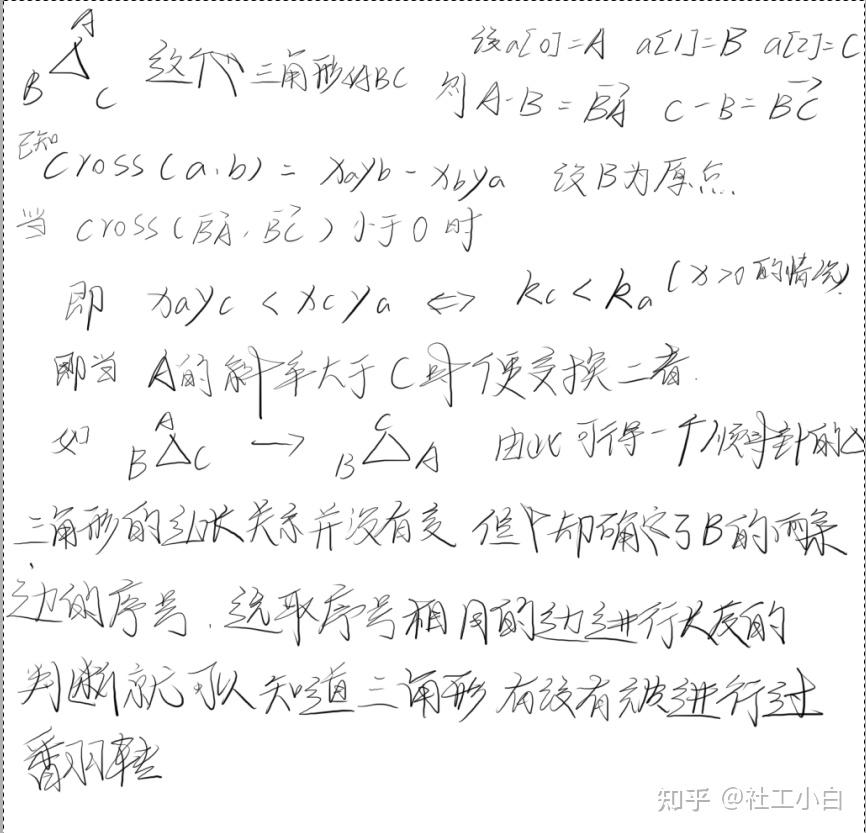 A
B C 这个三角形ABC 设a[0]=A a[1]=B a[2]=C
则 A-B=BA C-B=BC
已知 Cross(a,b)= xayb-xbya 设B为原点
当 cross(BA,BC)小于0时
即 xayc<xcya ⇔ kc<ka(x>0的情况)
即当 A的斜率大于C时便交换二者.
如 A B C → C B A 由此可得一个顺时针的△
三角形的边长关系并没有变 但却确定了B的两条
边的序号.选取序号相同的边进行长度的
判断就可以知道三角形有没有被进行过
翻转
知乎 @社工小白